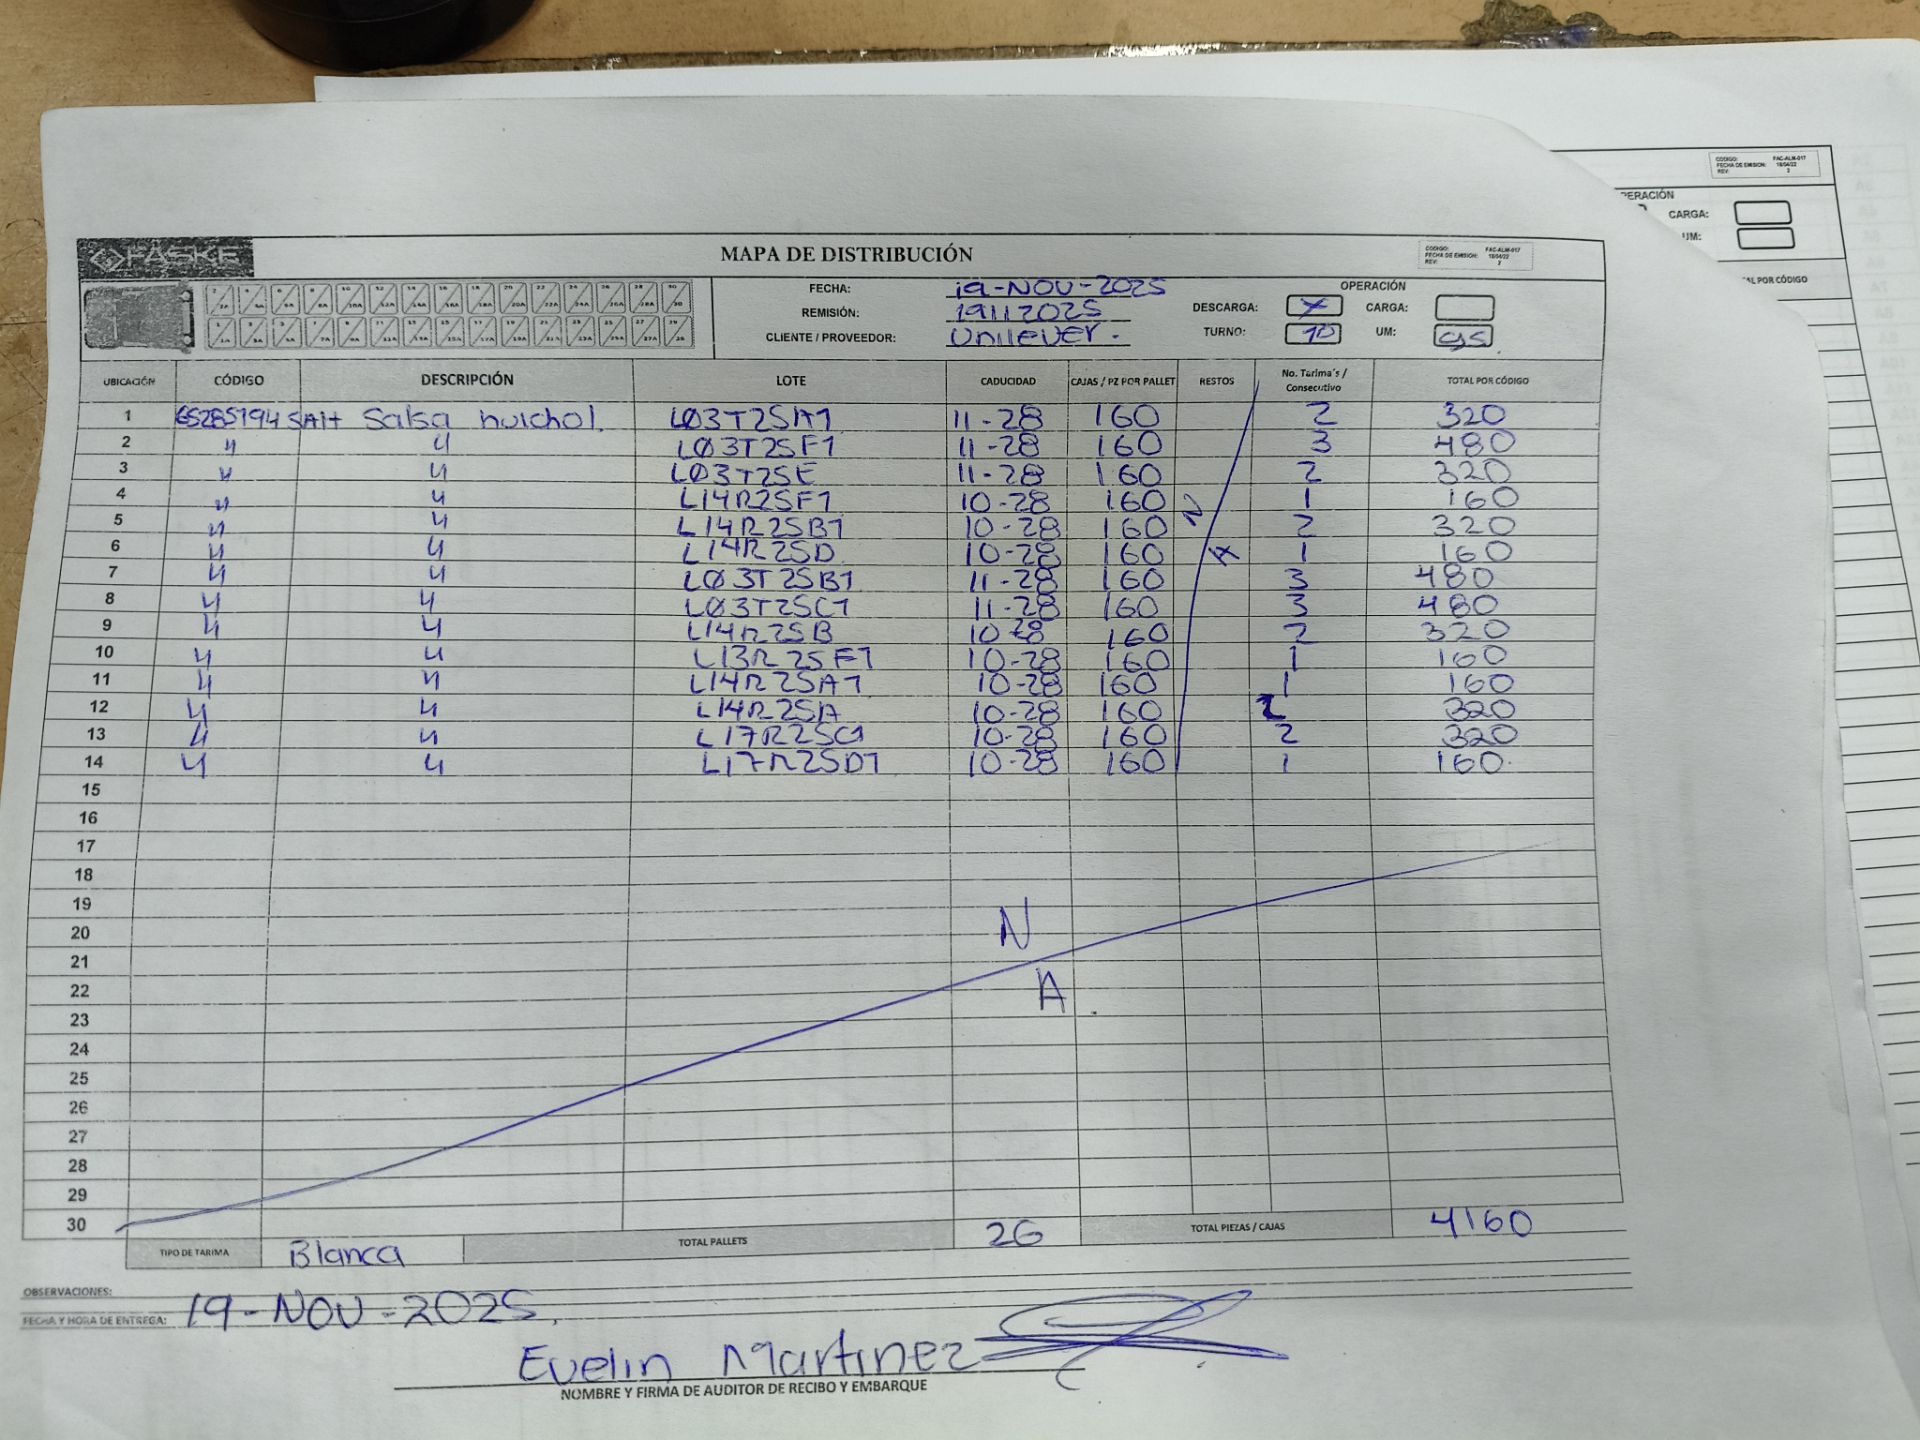 FASKE
MAPA DE DISTRIBUCIÓN
CODIGO: FAC-ALM-017
FECHA DE EMISION: 18/04/22
REV: 2
FECHA: 19-NOV-2025
REMISIÓN: 19112025
CLIENTE / PROVEEDOR: Unilever.
OPERACIÓN
DESCARGA: X CARGA:
TURNO: 1D UM: cjs.
UBICACIÓN CÓDIGO DESCRIPCIÓN LOTE CADUCIDAD CAJAS / PZ POR PALLET RESTOS No. Tarima's / Consecutivo TOTAL POR CÓDIGO
1 65285194 SAH Salsa huichol. LØ3T25A1 11-28 160 2 320
2 " " LØ3T25F1 11-28 160 3 480
3 " " LØ3T25E 11-28 160 2 320
4 " " L14R25F1 10-28 160 N 1 160
5 " " L14R25B1 10-28 160 2 320
6 " " L14R25D 10-28 160 A 1 160
7 " " LØ3T25B1 11-28 160 3 480
8 " " LØ3T25C1 11-28 160 3 480
9 " " L14R25B 10-28 160 2 320
10 " " L13R25F1 10-28 160 1 160
11 " " L14R25A1 10-28 160 1 160
12 " " L14R25A 10-28 160 2 320
13 " " L17R25C1 10-28 160 2 320
14 " " L17R25D1 10-28 160 1 160
15
16
17
18
19
20 N
21
22 A
23
24
25
26
27
28
29
30
TIPO DE TARIMA Blanca TOTAL PALLETS 26 TOTAL PIEZAS / CAJAS 4160
OBSERVACIONES:
FECHA Y HORA DE ENTREGA: 19-NOV-2025.
Evelin Martinez
NOMBRE Y FIRMA DE AUDITOR DE RECIBO Y EMBARQUE
CODIGO: FAC-ALM-017
FECHA DE EMISION: 18/04/22
REV: 2
PERACIÓN
CARGA:
UM:
AL POR CÓDIGO